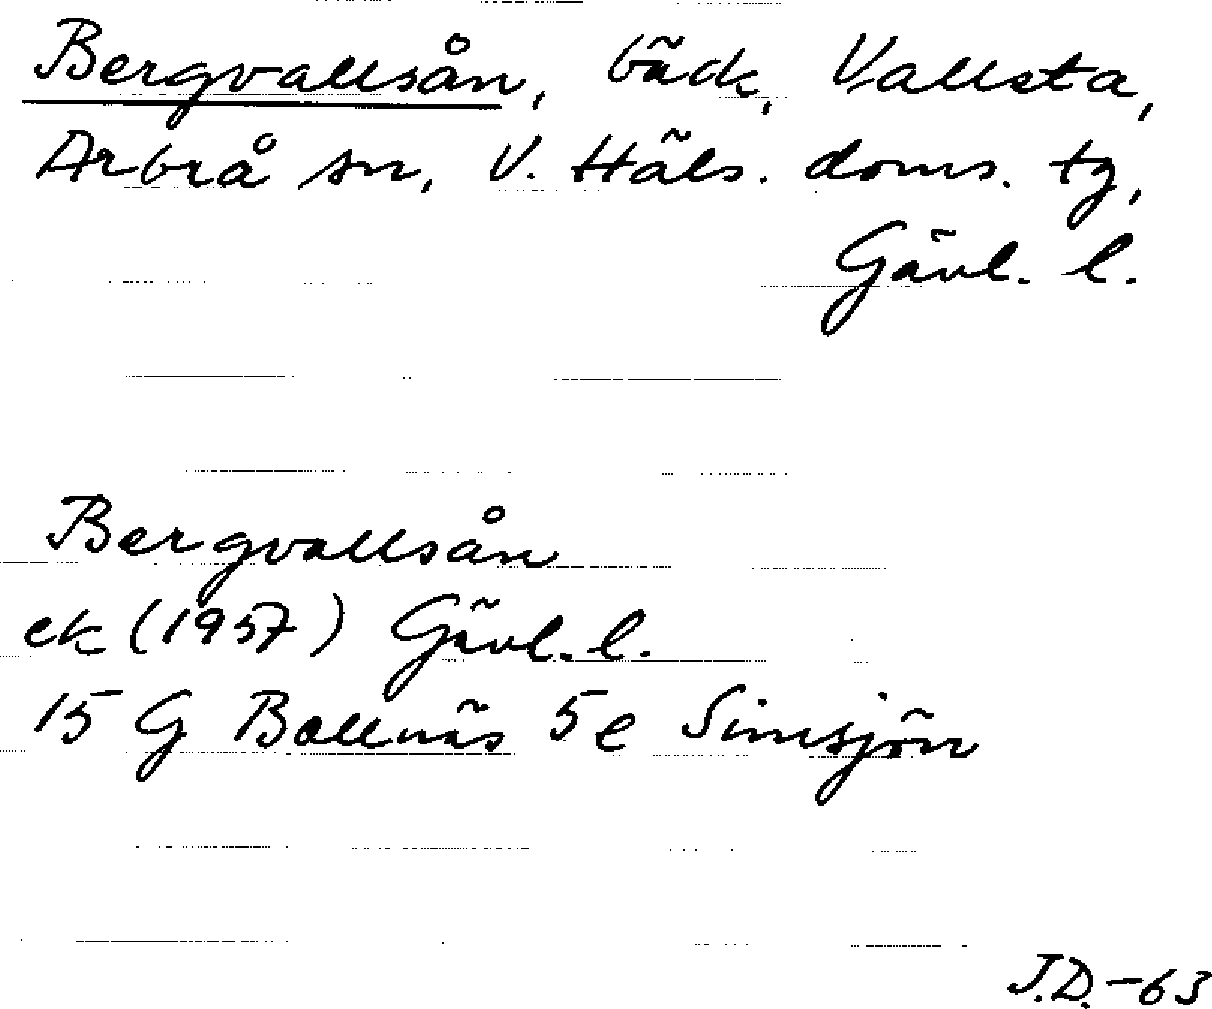 Bergvallsån, bäck, Vallsta,
Arbrå sn, V. Häls. doms. tg,
Gävl. l.
Bergvallsån
ek (1957) Gävl. l.
15 G Bollnäs 5e Simsjön
J.D.-63